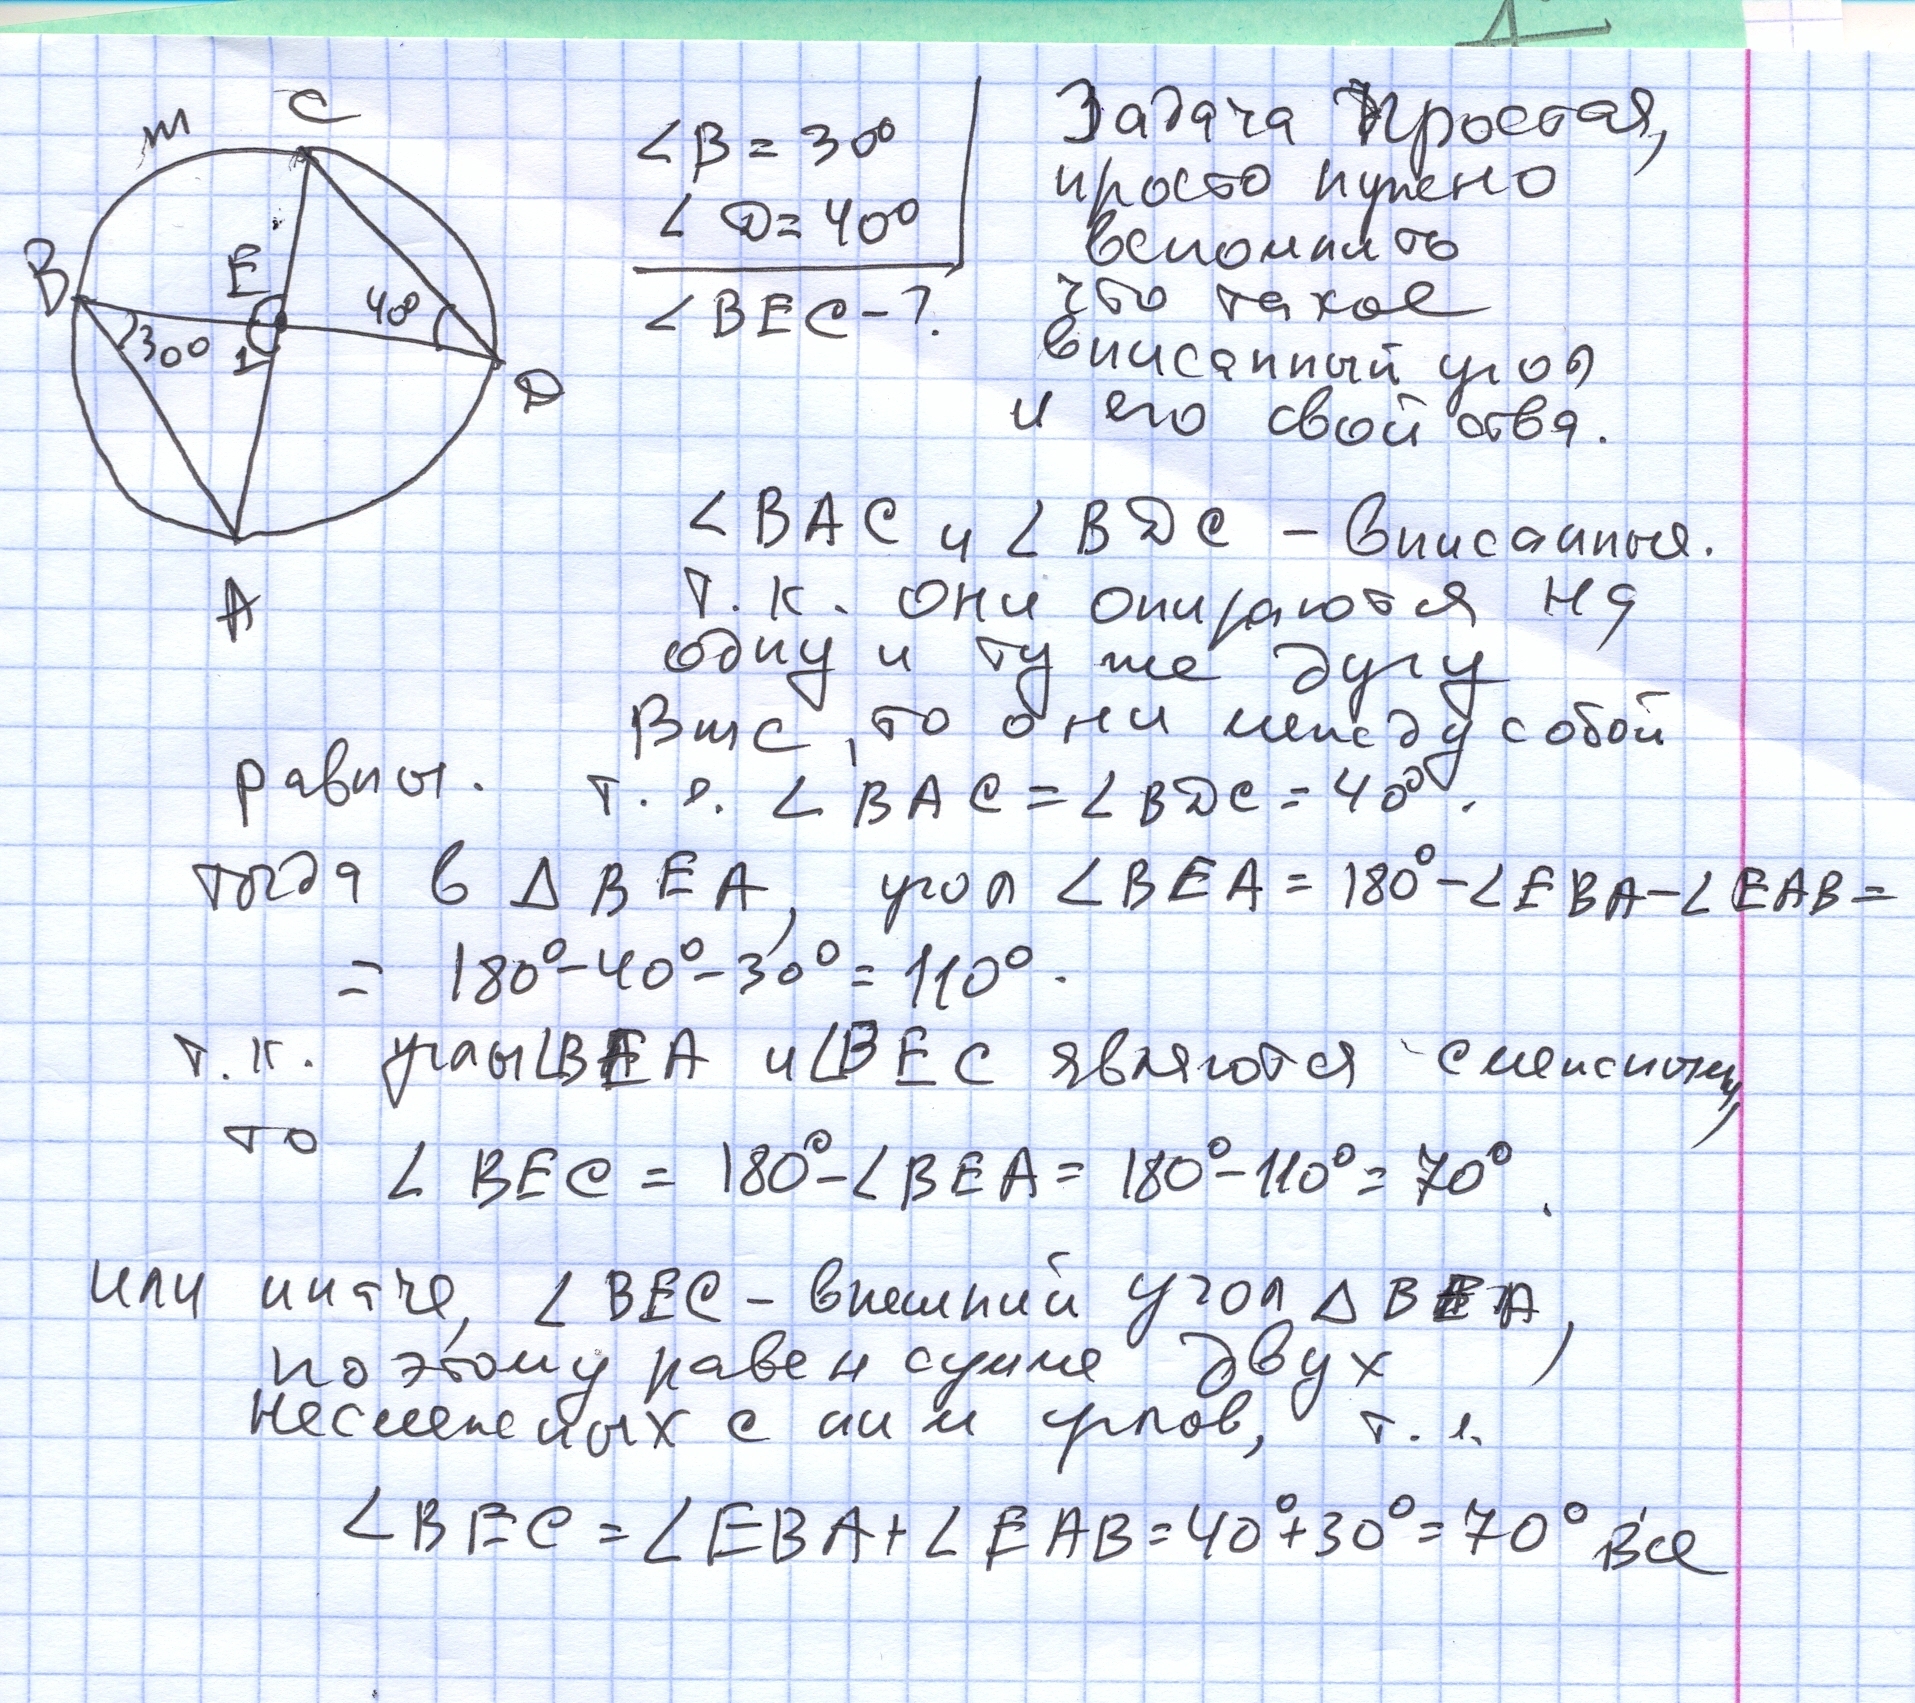 m
C
B
E
1
30°
40°
D
A
∠B = 30°
∠D = 40°
∠BEC - ?
Задача простая,
просто нужно
вспомнить
что такое
вписанный угол
и его свойства.
∠BAC и ∠BDC - вписанные.
т.к. они опираются на
одну и ту же дугу
BmC, то они между собой
равны. т.е. ∠BAC = ∠BDC = 40°.
тогда в ΔBEA, угол ∠BEA = 180° - ∠EBA - ∠EAB =
= 180° - 40° - 30° = 110°.
т.к. углы ∠BEA и ∠BEC являются смежными,
то ∠BEC = 180° - ∠BEA = 180° - 110° = 70°.
или иначе, ∠BEC - внешний угол ΔBEA,
поэтому равен сумме двух
несмежных с ним углов, т.е.
∠BEC = ∠EBA + ∠EAB = 40° + 30° = 70° Все